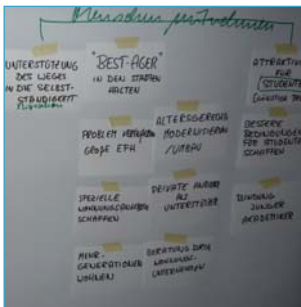 Menschen mitnehmen
UNTERSTÜTZUNG
DES WEGES
IN DIE SELBST-
STÄNDIGKEIT
"BEST-AGER"
IN DEN STÄDTEN
HALTEN
ATTRAKTIV
FÜR
STUDENTE
PROBLEM
GROßE EFH
ALTERSGERECHTE
MODERNISIERUNG
/UMBAU
BESSERE
BEDINGUNGEN
FÜR STUDENTE
SCHAFFEN
SPEZIELLE
SCHAFFEN
PRIVATE
ALS
BINDUNG
JUNGER
AKADEMIKER
MEHR-
GENERATIONEN
WOHNEN
BERATUNG DURCH
WOHNUNGS-
UNTERNEHMEN